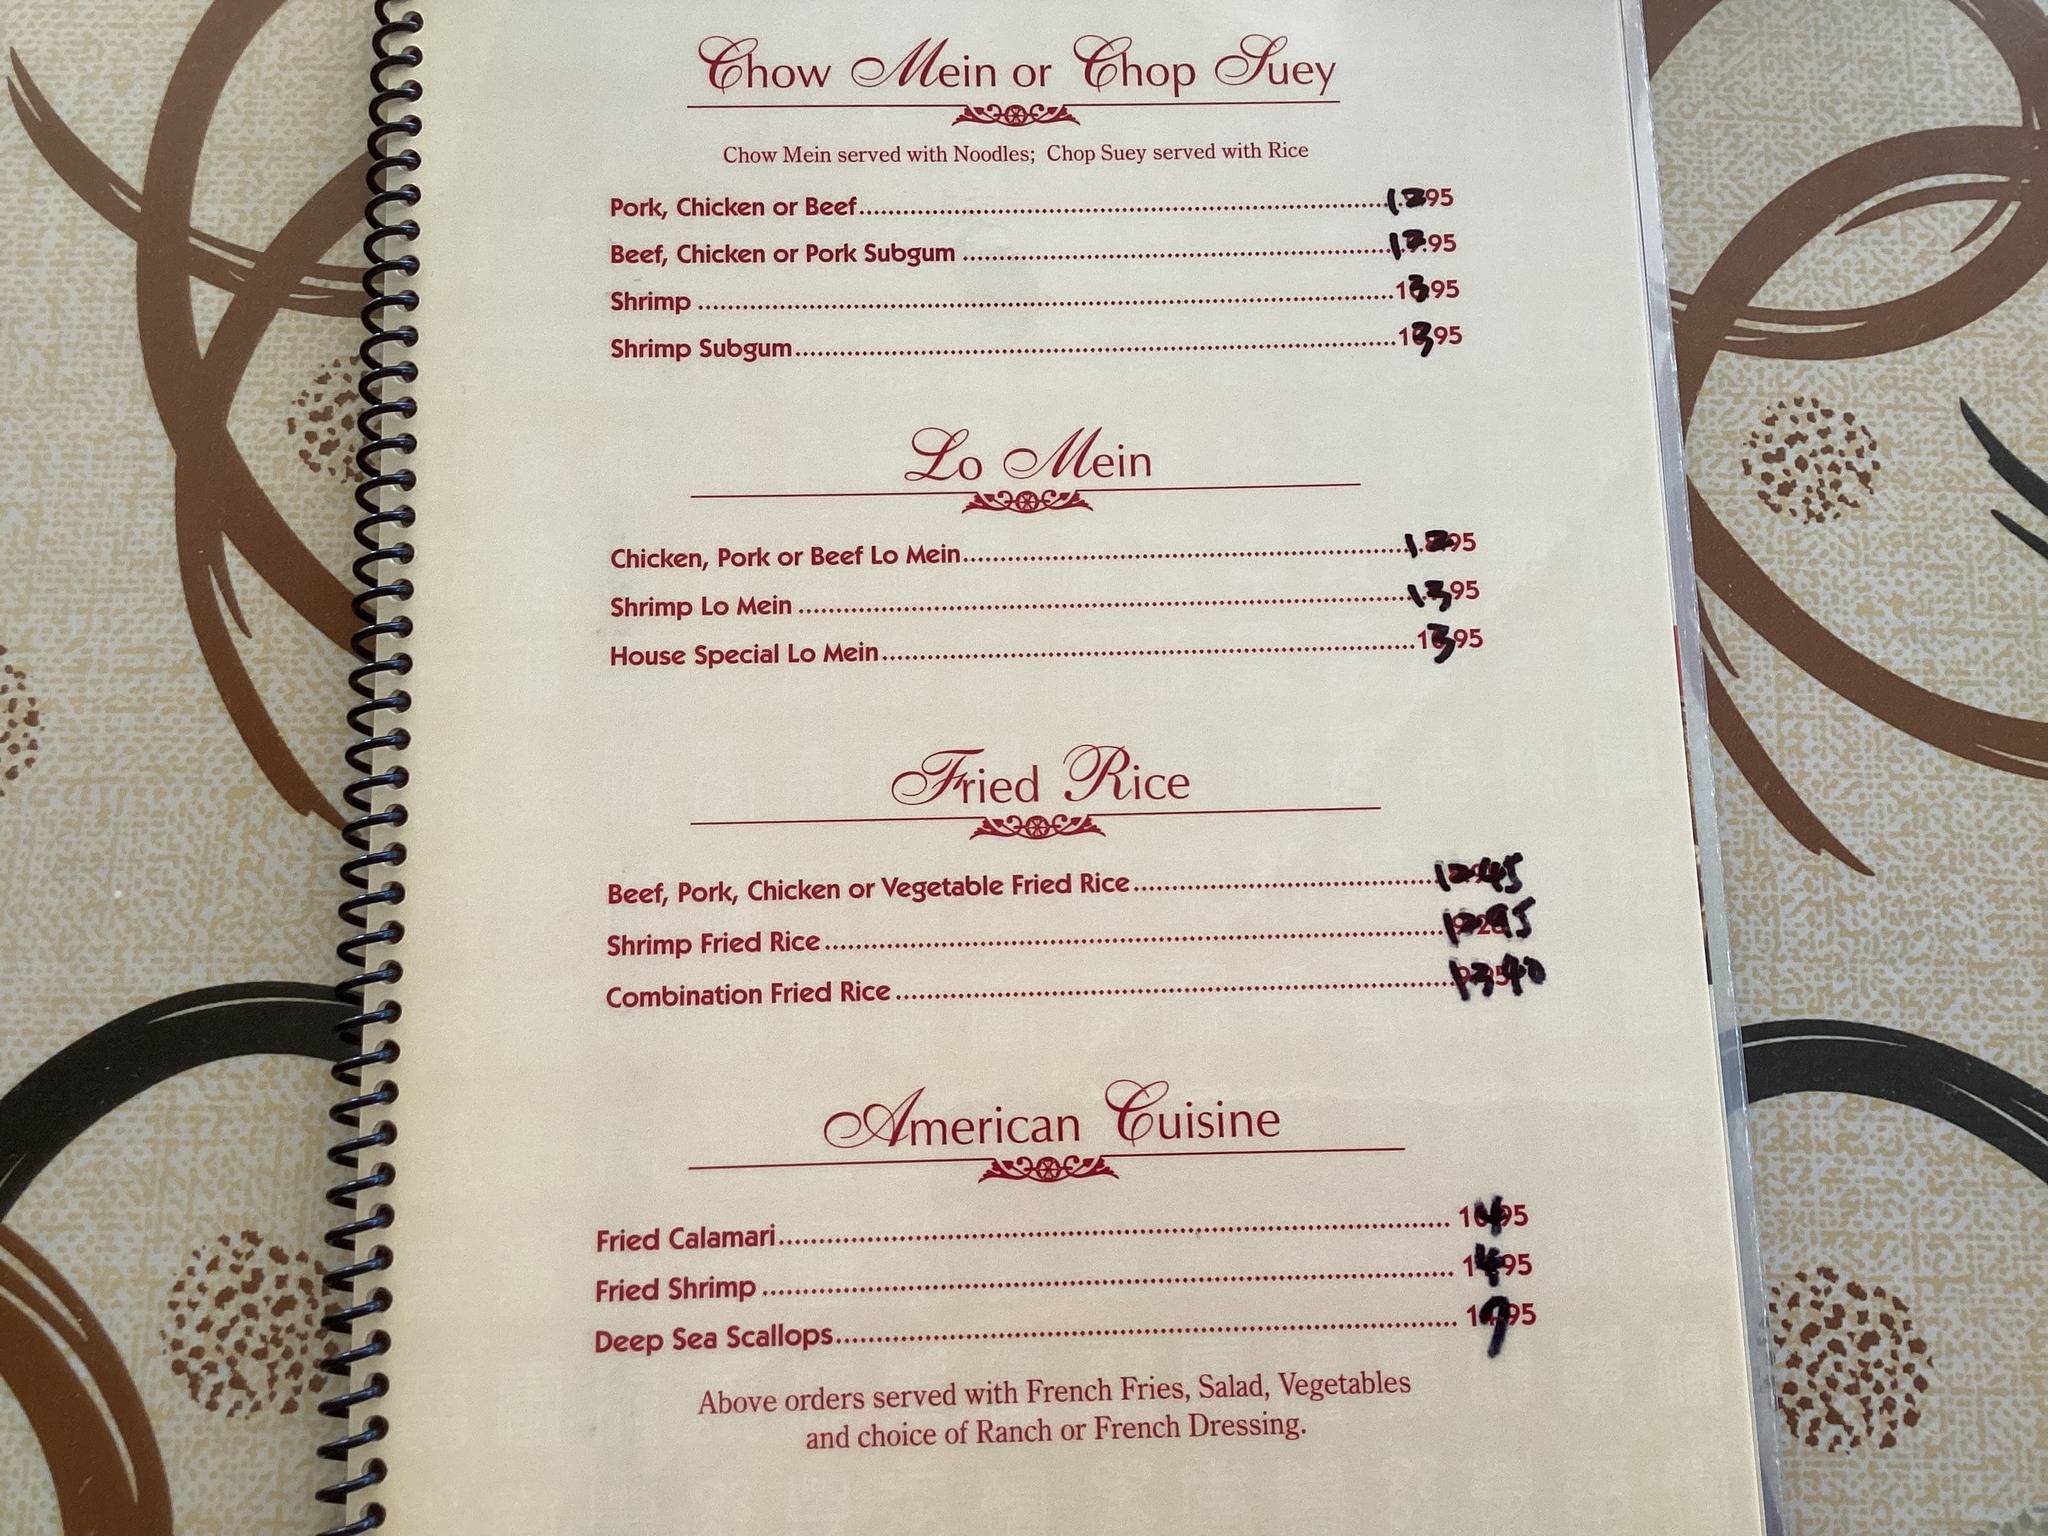 Chow Mein or Chop Suey
Chow Mein served with Noodles; Chop Suey served with Rice
Pork, Chicken or Beef 12.95
Beef, Chicken or Pork Subgum 12.95
Shrimp 13.95
Shrimp Subgum 13.95
Lo Mein
Chicken, Pork or Beef Lo Mein 12.95
Shrimp Lo Mein 13.95
House Special Lo Mein 13.95
Fried Rice
Beef, Pork, Chicken or Vegetable Fried Rice 12.45
Shrimp Fried Rice 12.95
Combination Fried Rice
American Cuisine
Fried Calamari 14.95
Fried Shrimp 14.95
Deep Sea Scallops 17.95
Above orders served with French Fries, Salad, Vegetables
and choice of Ranch or French Dressing.